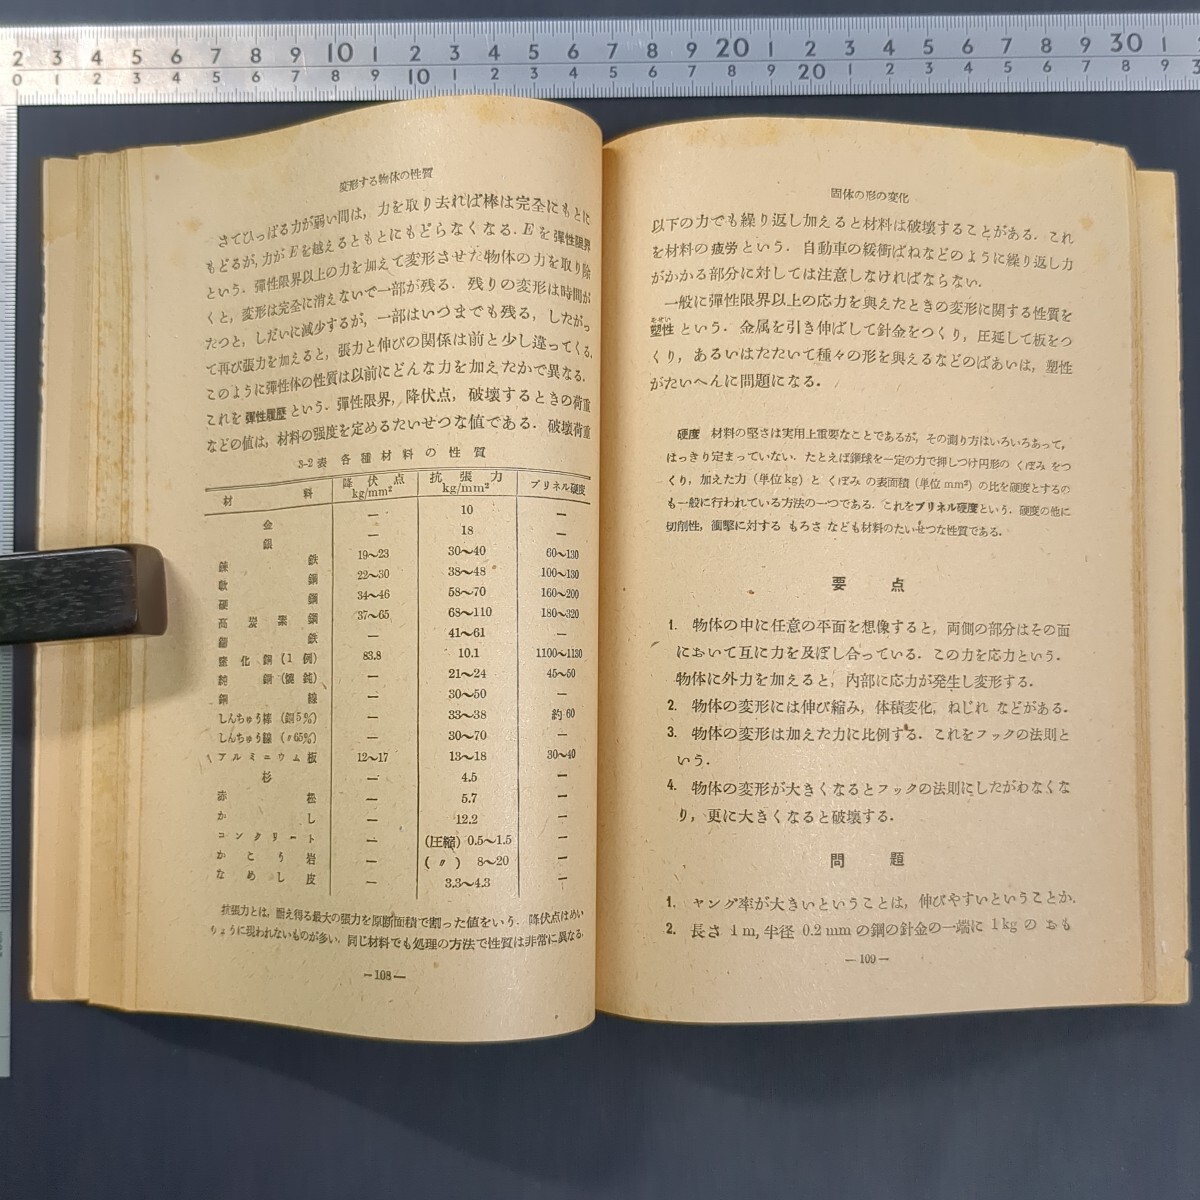 2 3 4 5 6 7 8 9 10 1 2 3 4 5 6 7 8 9 20 1 2 3 4 5 6 7 8 9 30 1
0 1 2 3 4 5 6 7 8 9 10 1 2 3 4 5 6 7 8 9 20 1 2 3 4 5 6 7 8 9
変形する物体の性質
さてひっぱる力が弱い間は，力を取り去れば棒は完全にもとに
もどるが，力が E を越えるともとにもどらなくなる．E を彈性限界
という．彈性限界以上の力を加えて変形させた物体の力を取り除
くと，変形は完全に消えないで一部が残る．残りの変形は時間が
たつと，しだいに減少するが，一部はいつまでも残る，したがっ
て再び張力を加えると，張力と伸びの関係は前と少し違ってくる，
このように彈性体の性質は以前にどんな力を加えたかで異なる．
これを彈性履歴という．彈性限界，降伏点，破壊するときの荷重
などの値は，材料の强度を定めるたいせつな値である．破壊荷重
3-2表 各種材料の性質
材料 降伏点 kg/mm² 抗張力 kg/mm² ブリネル硬度
金 — 10 —
銀 — 18 —
錬鉄 19～23 30～40 60～130
軟鋼 22～30 38～48 100～130
硬鋼 34～46 58～70 160～200
高炭素鋼 37～65 68～110 180～320
鋼鉄 — 41～61 —
窒化鋼(1例) 83.8 10.1 1100～1130
純銅(焼鈍) — 21～24 45～50
銅線 — 30～50 —
しんちゅう棒 — 33～38 約60
しんちゅう線 (〃65%) — 30～70 —
アルミニウム板 12～17 13～18 30～40
杉 — 4.5 —
赤松 — 5.7 —
かし — 12.2 —
コンクリート — (圧縮) 0.5～1.5 —
かこう岩 — (〃) 8～20 —
なめし皮 — 3.3～4.3 —
抗張力とは，耐え得る最大の張力を原断面積で割った値をいう．降伏点はめい
りょうに現われないものが多い．同じ材料でも処理の方法で性質は非常に異なる．
—108—
固体の形の変化
以下の力でも繰り返し加えると材料は破壊することがある．これ
を材料の疲労という．自動車の緩衝ばねなどのように繰り返し力
がかかる部分に対しては注意しなければならない．
一般に彈性限界以上の応力を與えたときの変形に関する性質を
そせい
塑性という．金属を引き伸ばして針金をつくり，圧延して板をつ
くり，あるいはたたいて種々の形を與えるなどのばあいは，塑性
がたいへんに問題になる．
硬度 材料の堅さは実用上重要なことであるが，その測り方はいろいろあって，
はっきり定まっていない．たとえば鋼球を一定の力で押しつけ円形の くぼみ をつ
くり，加えた力（単位 kg）と くぼみ の表面積（単位 mm²）の比を硬度とするの
も一般に行われている方法の一つである．これをブリネル硬度という．硬度の他に
切削性，衝擊に対する もろさ なども材料のたいせつな性質である．
要点
1. 物体の中に任意の平面を想像すると，両側の部分はその面
において互に力を及ぼし合っている．この力を応力という．
物体に外力を加えると，内部に応力が発生し変形する．
2. 物体の変形には伸び縮み，体積変化，ねじれ などがある．
3. 物体の変形は加えた力に比例する．これをフックの法則と
いう．
4. 物体の変形が大きくなるとフックの法則にしたがわなくな
り，更に大きくなると破壊する．
問題
1. ヤング率が大きいということは，伸びやすいということか．
2. 長さ 1m, 半径 0.2mm の鋼の針金の一端に 1kg の おも
—109—